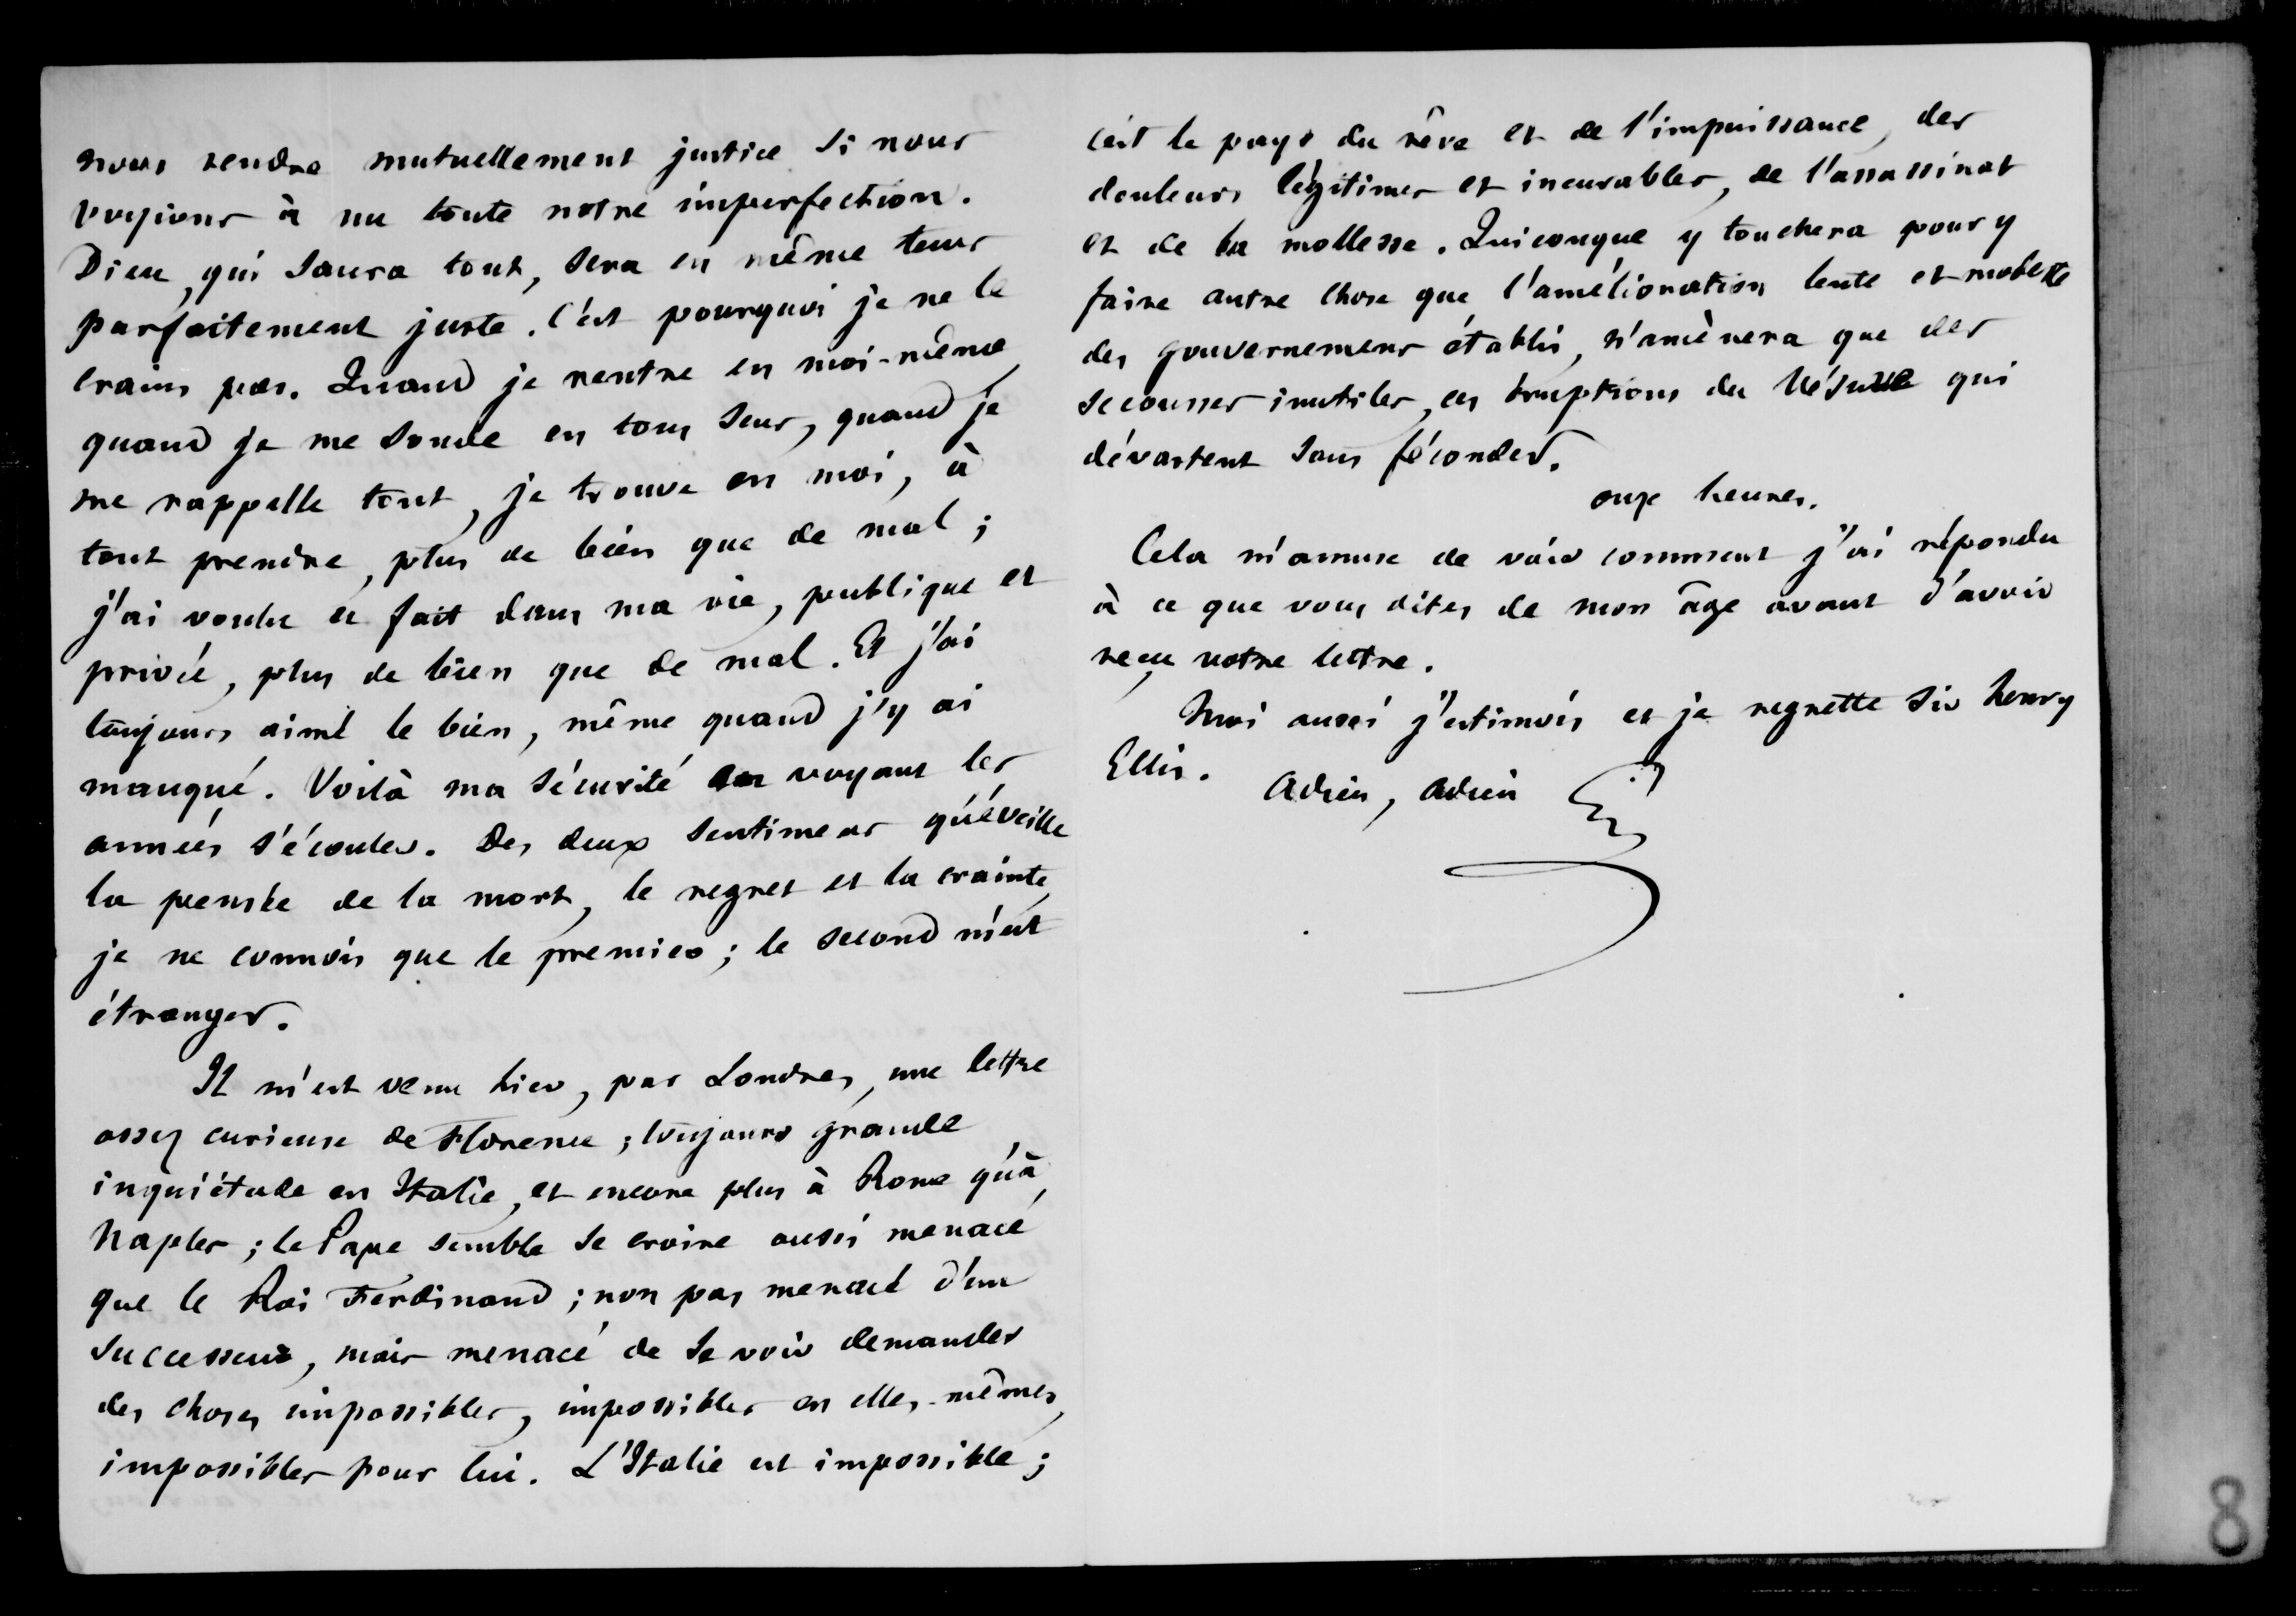 nous rendre mutuellement justice si nous
voyions à nu toute notre imperfection.
Dieu, qui saura tout, sera en même tems
parfaitement juste. C'est pourquoi je ne le
crains pas. Quand je rentre en moi-même,
quand je me sonde en tous sens, quand je
me rappelle tout, je trouve en moi, à
tout prendre, plus de bien que de mal ;
j'ai voulu et fait dans ma vie, publique et
privée, plus de bien que de mal. Et j'ai
toujours aimé le bien, même quand j'y ai
manqué. Voilà ma sécurité en voyant les
années s'écouler. Des deux sentimens qu'éveille
la pensée de la mort, le regret et la crainte,
je ne connois que le premier ; le second m'est
étranger.
Il m'est venu hier, par Londres, une lettre
assez curieuse de Florence ; toujours grande
inquiétude en Italie, et encore plus à Rome qu'à
Naples ; le Pape semble se croire aussi menacé
que le Roi Ferdinand ; non pas menacé d'un
successeur, mais menacé de se voir demander
des choses impossibles, impossibles en elles-mêmes,
impossibles pour lui. L'Italie est impossible ;
c'est le pays du rêve et de l'impuissance, des
douleurs légitimes et incurables, de l'assassinat
et de la mollesse. Quiconque y touchera pour y
faire autre chose que l'amélioration lente et modeste
des gouvernemens établis, n'amènera que des
secousses inutiles, des éruptions du Vésuve qui
dévastent sans féconder.
onze heures.
Cela m'amuse de voir comment j'ai répondu
à ce que vous dites de mon âge avant d'avoir
reçu votre lettre.
Moi aussi j'estimois et je regrette Sir henry
Ellis.
Adieu, adieu
8